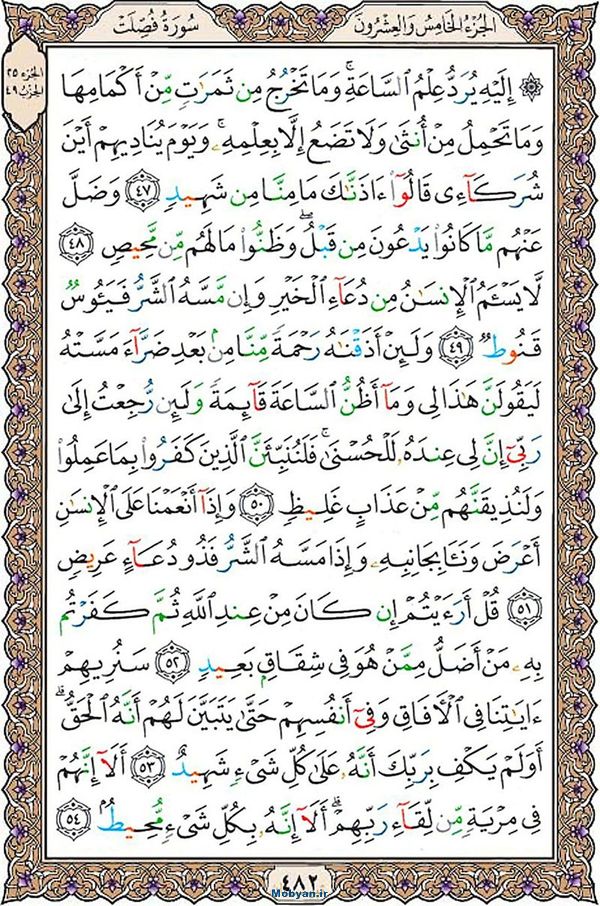 الجزء الخامس والعشرون
سورة فصلت
الجزء ٢٥
الحزب ٤٩
۞ إِلَيْهِ يُرَدُّ عِلْمُ السَّاعَةِ ۚ وَمَا تَخْرُجُ مِن ثَمَرَٰتٍ مِّنْ أَكْمَامِهَا
وَمَا تَحْمِلُ مِنْ أُنثَىٰ وَلَا تَضَعُ إِلَّا بِعِلْمِهِۦ ۚ وَيَوْمَ يُنَادِيهِمْ أَيْنَ
شُرَكَآءِى قَالُوٓا۟ ءَاذَنَّـٰكَ مَا مِنَّا مِن شَهِيدٍ ٤٧ وَضَلَّ
عَنْهُم مَّا كَانُوا۟ يَدْعُونَ مِن قَبْلُ ۖ وَظَنُّوا۟ مَا لَهُم مِّن مَّحِيصٍ ٤٨
لَّا يَسْـَٔمُ الْإِنسَـٰنُ مِن دُعَآءِ الْخَيْرِ وَإِن مَّسَّهُ الشَّرُّ فَيَـُٔوسٌ
قَنُوطٌ ٤٩ وَلَئِنْ أَذَقْنَـٰهُ رَحْمَةً مِّنَّا مِنۢ بَعْدِ ضَرَّآءَ مَسَّتْهُ
لَيَقُولَنَّ هَـٰذَا لِى وَمَآ أَظُنُّ السَّاعَةَ قَآئِمَةً وَلَئِن رُّجِعْتُ إِلَىٰ
رَبِّىٓ إِنَّ لِى عِندَهُۥ لَلْحُسْنَىٰ ۚ فَلَنُنَبِّئَنَّ الَّذِينَ كَفَرُوا۟ بِمَا عَمِلُوا۟
وَلَنُذِيقَنَّهُم مِّنْ عَذَابٍ غَلِيظٍ ٥٠ وَإِذَآ أَنْعَمْنَا عَلَى الْإِنسَـٰنِ
أَعْرَضَ وَنَـَٔا بِجَانِبِهِۦ وَإِذَا مَسَّهُ الشَّرُّ فَذُو دُعَآءٍ عَرِيضٍ
٥١ قُلْ أَرَءَيْتُمْ إِن كَانَ مِنْ عِندِ اللَّهِ ثُمَّ كَفَرْتُم
بِهِۦ مَنْ أَضَلُّ مِمَّنْ هُوَ فِى شِقَاقٍۭ بَعِيدٍ ٥٢ سَنُرِيهِمْ
ءَايَـٰتِنَا فِى الْـَٔافَاقِ وَفِىٓ أَنفُسِهِمْ حَتَّىٰ يَتَبَيَّنَ لَهُمْ أَنَّهُ الْحَقُّ ۗ
أَوَلَمْ يَكْفِ بِرَبِّكَ أَنَّهُۥ عَلَىٰ كُلِّ شَىْءٍ شَهِيدٌ ٥٣ أَلَآ إِنَّهُمْ
فِى مِرْيَةٍ مِّن لِّقَآءِ رَبِّهِمْ ۗ أَلَآ إِنَّهُۥ بِكُلِّ شَىْءٍ مُّحِيطٌۢ ٥٤
٤٨٢
Mobyan.ir